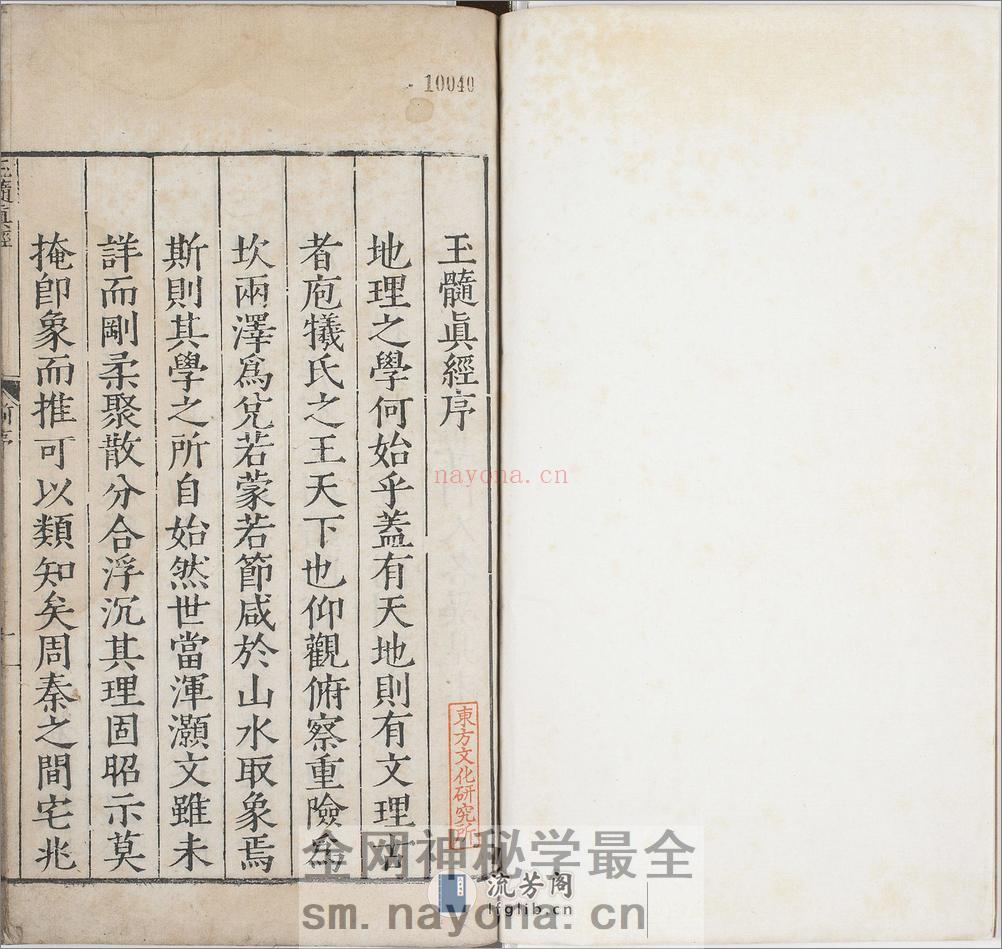 10040
玉髓眞經序
地理之學何始乎蓋有天地則有文理古
者庖犧氏之王天下也仰觀俯察重險爲
坎兩澤爲兌若蒙若節咸於山水取象焉
斯則其學之所自始然世當渾灝文雖未
詳而剛柔聚散分合浮沉其理固昭示莫
掩卽象而推可以類知矣周秦之間宅兆
玉髓眞經
前序
東方文化研究所
nayona.cn
金网神秘学最全
流芳阁
lfglib.cn
sm.nayona.cn